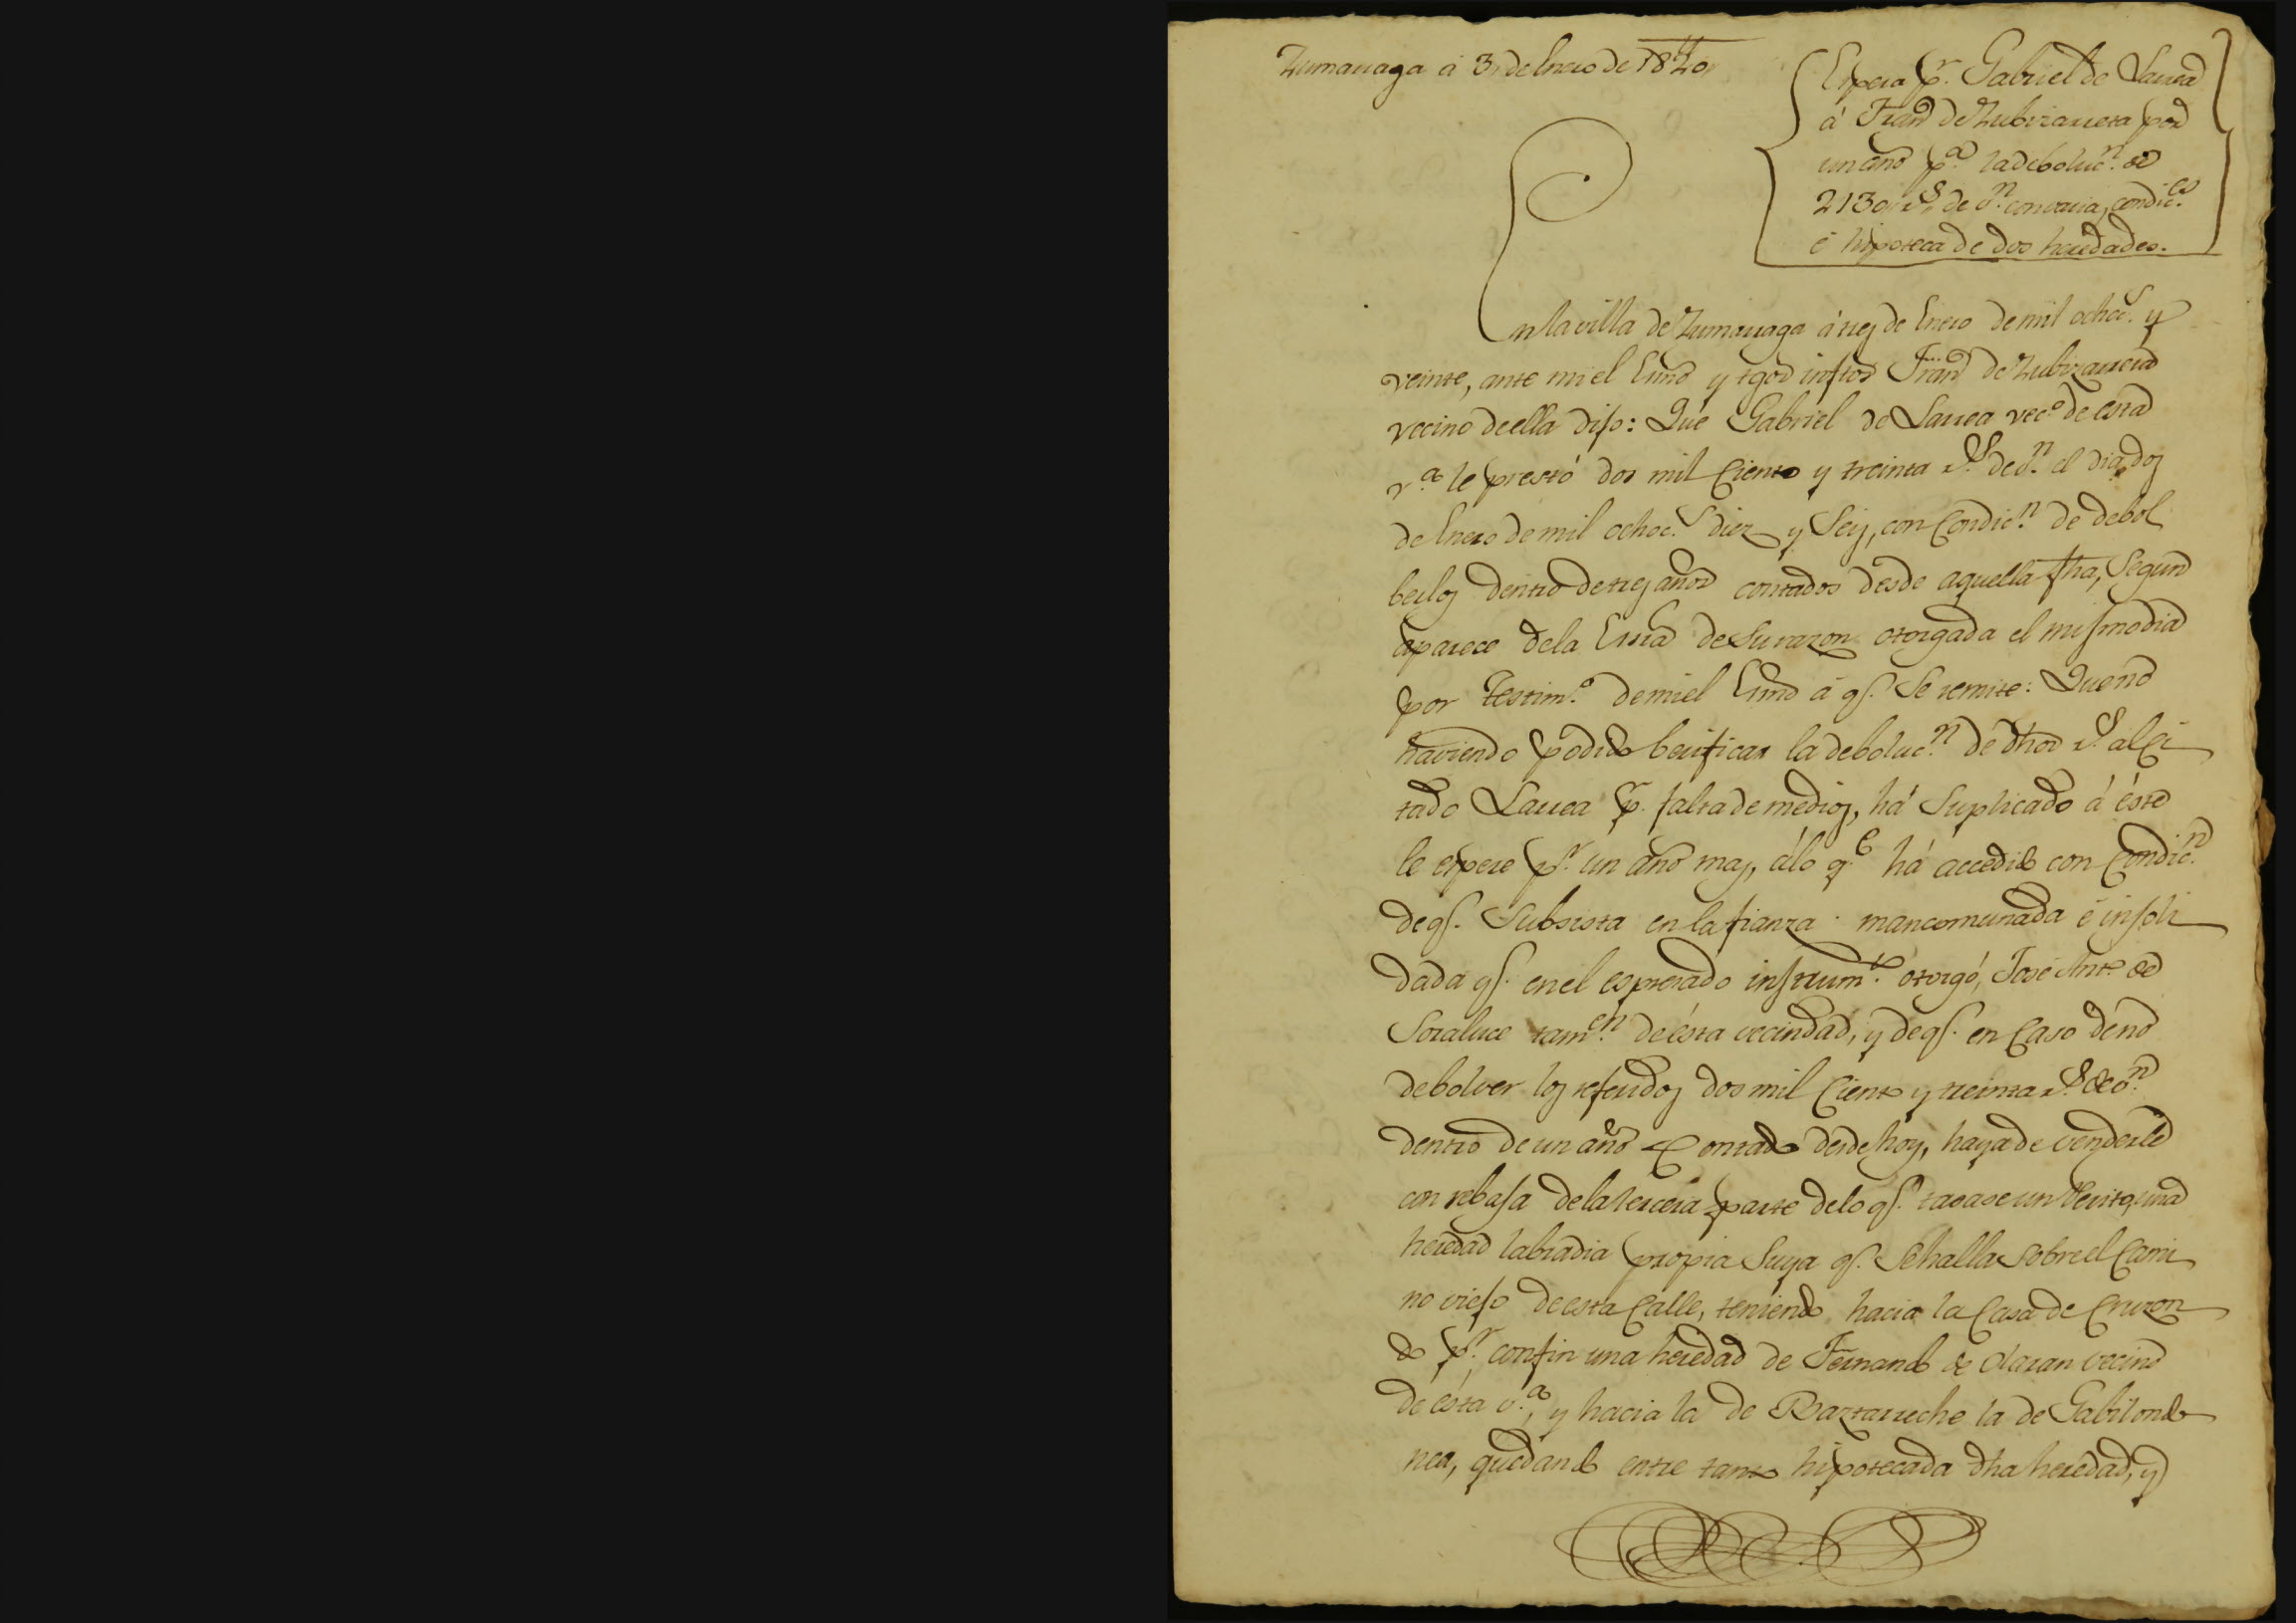 Zumarraga á 3 de Enero de 1820,
Espera pr. Gabriel de Larrea
á Fran.co de Zubizarreta por
un año pa. la deboluc.n de
2130 rs. de v.n con varias condic.es
é hipoteca de dos heredades.
En la villa de Zumarraga á tres de Enero de mil ochoc.s y
veinte, ante mi el Esno y tgos infros Fran.co de Zubizarreta
vecino de ella dijo: Que Gabriel de Larrea vec.o de esta
v.a le prestó dos mil Ciento y treinta rs. de v.n el dia dos
de Enero de mil ochoc.s diez y Seis, con Condic.n de debol
berlos dentro de tres años contados desde aquella fha, Segun
aparece de la Essra de Su razon otorgada el mismo dia
por Testim.o de mi el Esno á q.e Se remite: Que no
haviendo podido berificar la deboluc.n de dhos rs. al Ci
tado Larrea pr. falta de medios, há Suplicado á éste
le espere pr. un año mas, á lo q.e há accedido con Condic.n
de q.e Subsista en la fianza mancomunada é insoli
dada q.e en el espresado instrum.to otorgó, José Ant.o de
Soraluce tam.en de ésta vecindad, y de q.e en Caso de no
debolver los referidos dos mil Ciento y treinta rs. de v.n
dentro de un año Contado desde hoy, haya de venderle
con rebaja de la tercera parte de lo q.e tasase un Perito, una
heredad labradia propia Suya q.e Se halla Sobre el Cami
no viejo de esta Calle, teniendo hacia la Casa de Eruzon
do pr. confin una heredad de Fernando de Olaran vecino
de ésta v.a, y hacia la de Baztarreche la de Gabilondo
nea, quedando entre tanto hipotecada dha heredad, y